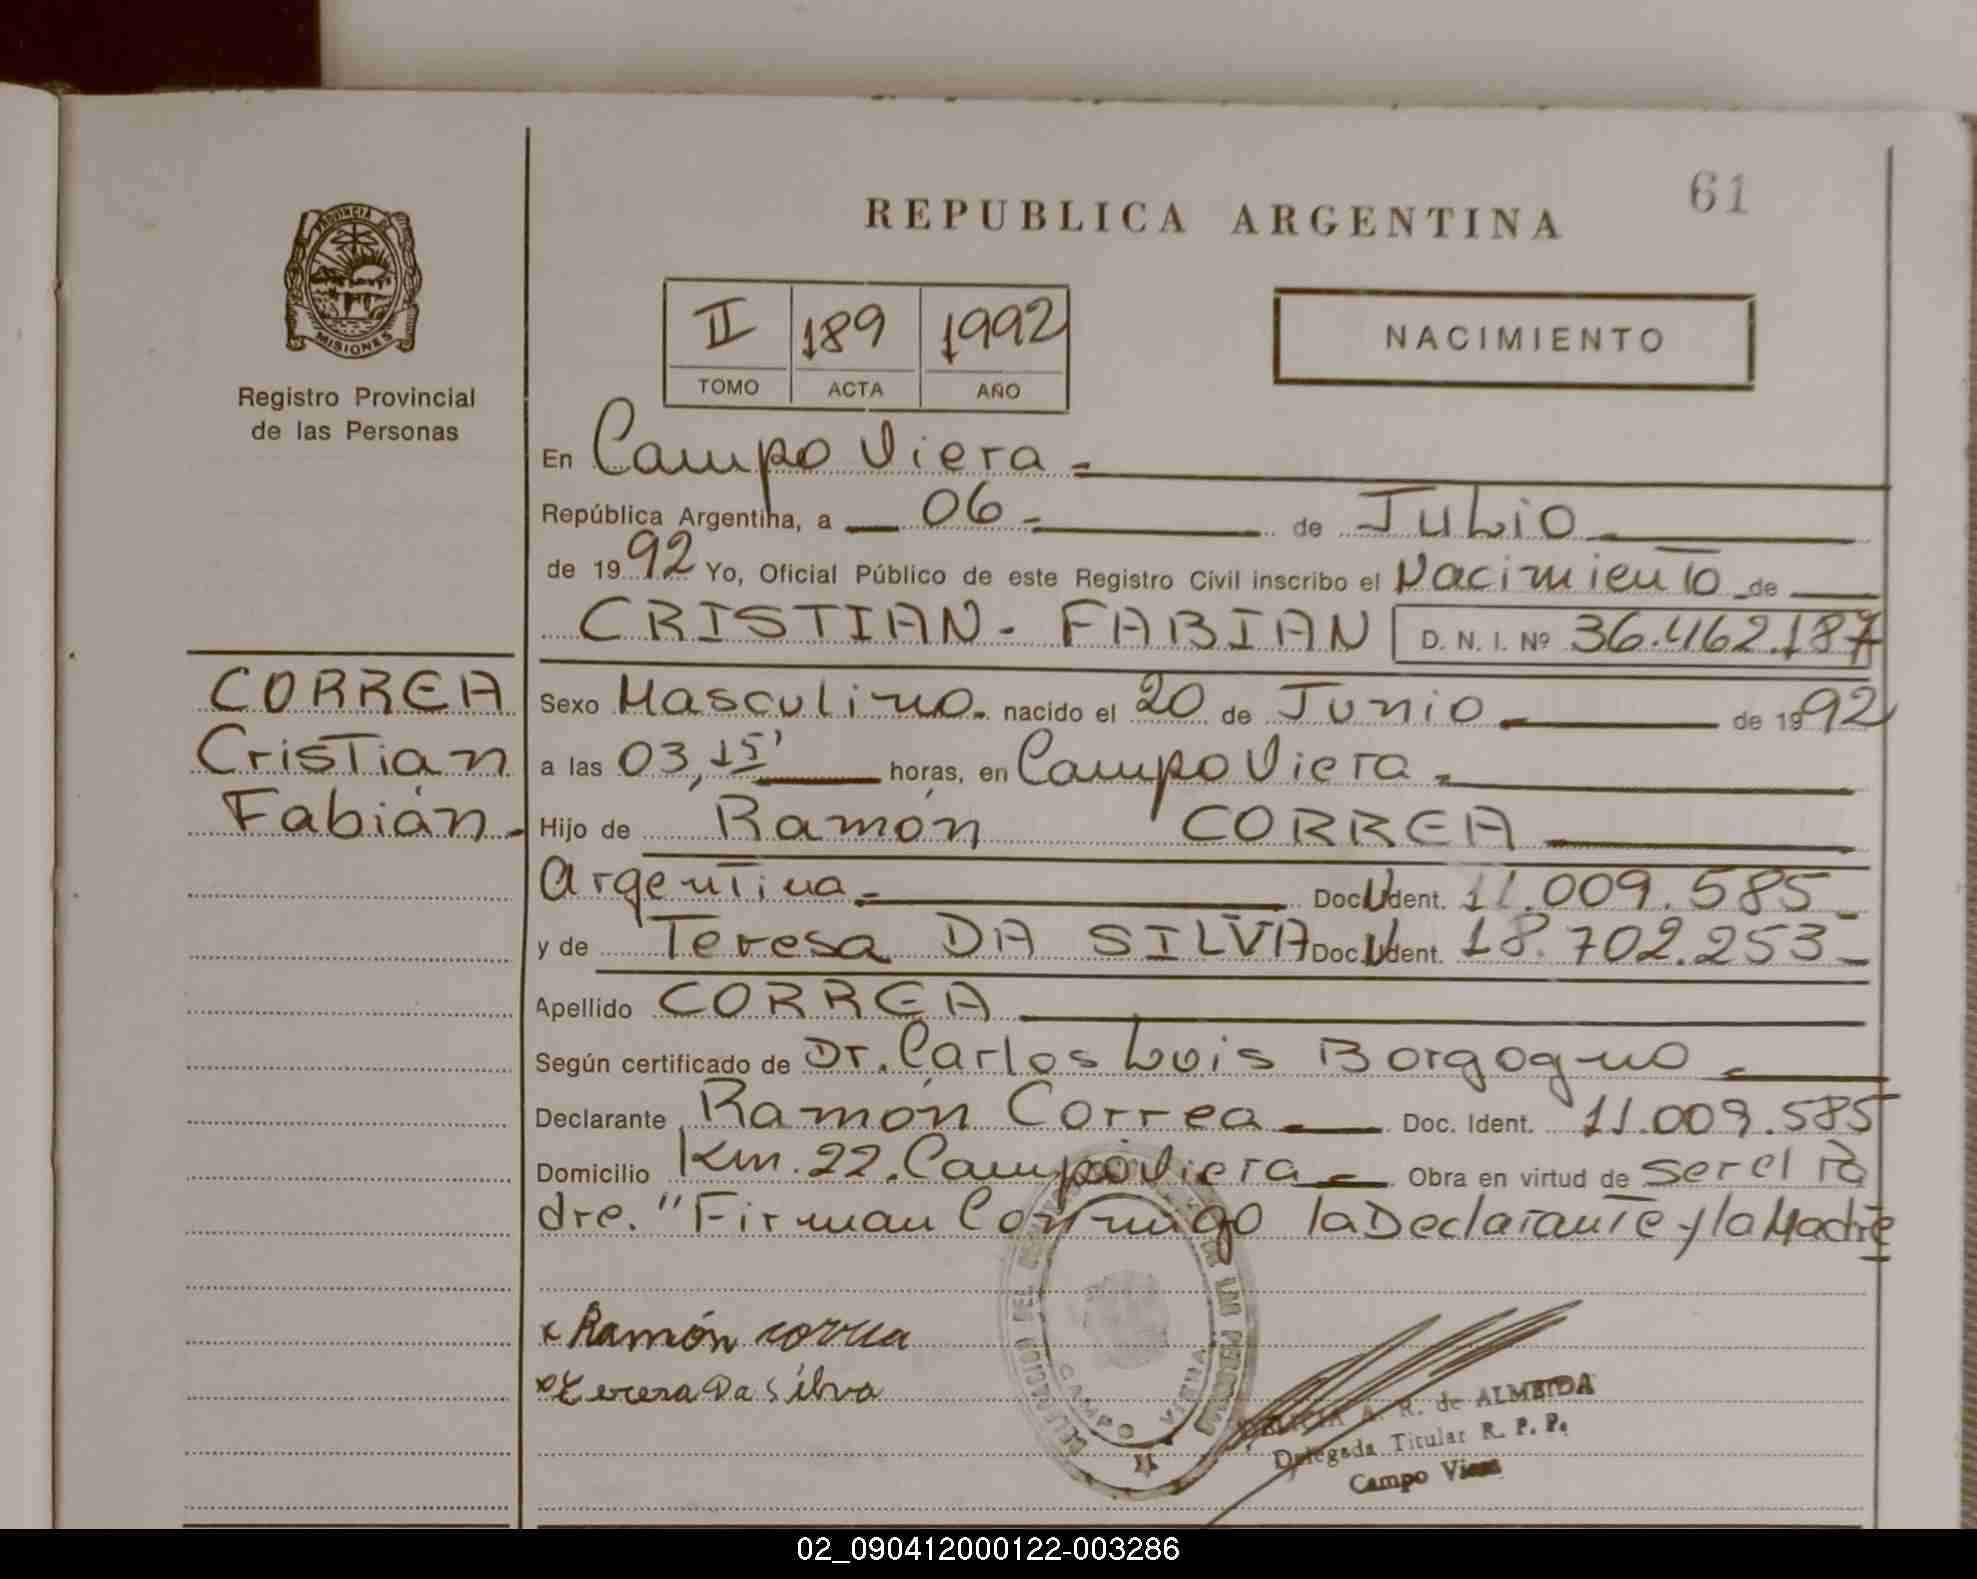 61
REPUBLICA ARGENTINA
PROVINCIA DE
MISIONES
Registro Provincial
de las Personas
II 189 1992
TOMO ACTA AÑO
NACIMIENTO
En Campo Viera
República Argentina, a 06 de Julio
de 1992 Yo, Oficial Público de este Registro Civil inscribo el Nacimiento de
CRISTIAN - FABIAN D. N. I. Nº 36.462.187
CORREA
Cristian
Fabián.
Sexo Masculino. nacido el 20 de Junio de 1992
a las 03,15' horas, en Campo Viera
Hijo de Ramón CORREA
Argentina Doc. Ident. 11.009.585
y de Teresa DA SILVA Doc. Ident. 18.702.253
Apellido CORREA
Según certificado de Dr. Carlos Luis Borgogno
Declarante Ramón Correa Doc. Ident. 11.009.585
Domicilio Km. 22. Campo Viera Obra en virtud de ser el Pa
dre. "Firman Conmigo la Declarante y la Madre
x Ramón correa
x Teresa Da Silva
DE LAS PERSONAS
CAMPO VIERA
A. R. de ALMEIDA
Delegada Titular R. P. P.
Campo Viera
02_090412000122-003286